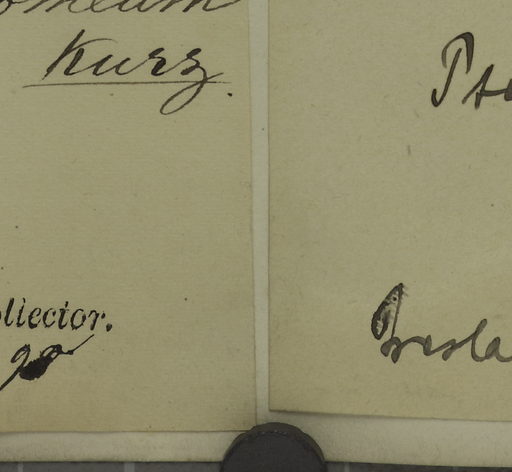 Kurz.
ollector.
90
Pte
Bresla